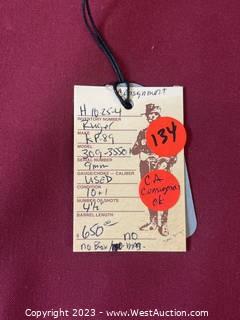 Consignment
H 1025-4
INVENTORY NUMBER
Ruger
MAKE
KP-89
MODEL
309-55501
SERIAL NUMBER
9mm
GAUGE/CHOKE - CALIBER
USED
CONDITION
10+1
NUMBER OF SHOTS
4½
BARREL LENGTH
$650
no Box no
134
CA
Consignment
ok
Copyright © 2023 - WestAuction.com